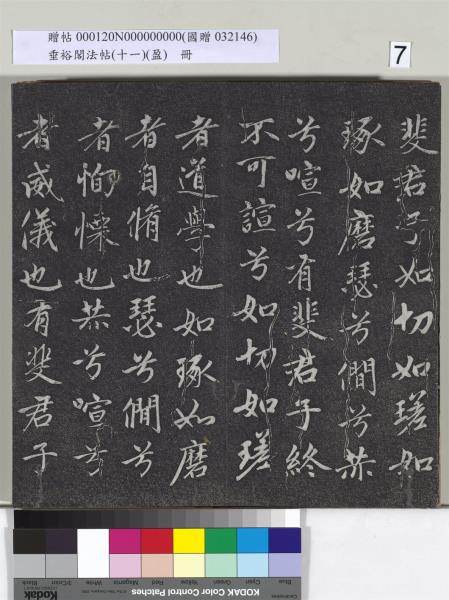 贈帖 000120N000000000(國贈 032146)
垂裕閣法帖(十一)(盈) 冊
7
斐君子如切如瑳如
琢如磨瑟兮僩兮赫
兮喧兮有斐君子終
不可諠兮如切如瑳
者道學也如琢如磨
者自脩也瑟兮僩兮
者恂慄也赫兮喧兮
者威儀也有斐君子
Blue Cyan Green Yellow Red Magenta White 3/Color Black
Kodak Color Control Patches
Kodak